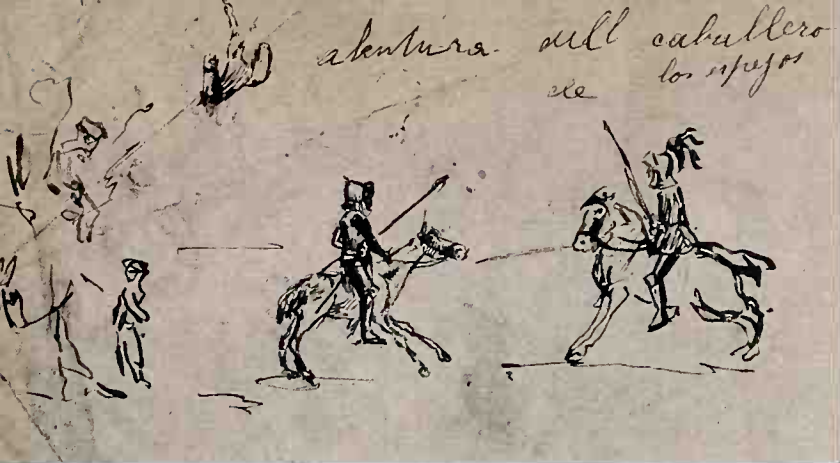 abentura dell caballero
de los espejos